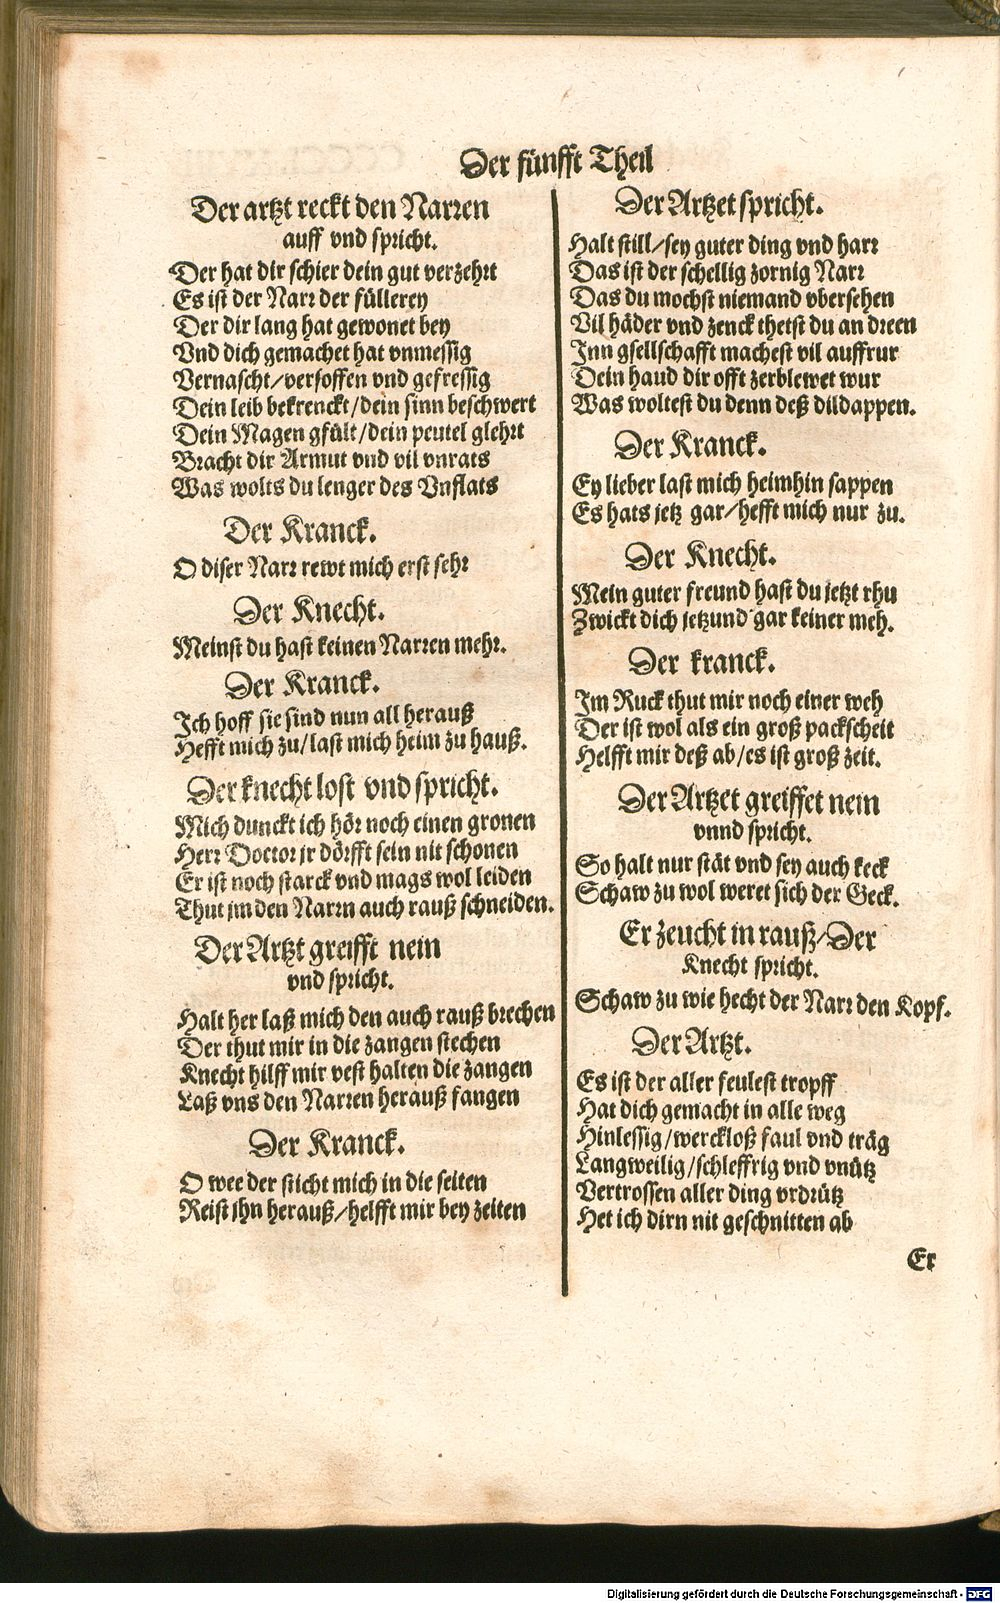 Der fünfft Theil
Der artzt reckt den Narren
auff vnd spricht.
Der hat dir schier dein gut verzehrt
Es ist der Narr der füllerey
Der dir lang hat gewonet bey
Vnd dich gemachet hat vnmessig
Vernascht/versoffen vnd gefressig
Dein leib bekrenckt/dein sinn beschwert
Dein Magen gfült/dein peutel glehrt
Bracht dir Armut vnd vil vnrats
Was wolts du lenger des Vnflats
Der Kranck.
O diser Narr rewt mich erst sehr
Der Knecht.
Meinst du hast keinen Narren mehr.
Der Kranck.
Ich hoff sie sind nun all herauß
Hefft mich zu/last mich heim zu hauß.
Der knecht lost vnd spricht.
Mich dunckt ich hör noch einen gronen
Herr Doctor jr dörfft sein nit schonen
Er ist noch starck vnd mags wol leiden
Thut jm den Narrn auch rauß schneiden.
Der Artzt greifft nein
vnd spricht.
Halt her laß mich den auch rauß brechen
Der thut mir in die zangen stechen
Knecht hilff mir vest halten die zangen
Laß vns den Narren herauß fangen
Der Kranck.
O wee der sticht mich in die seiten
Reist jhn herauß/helfft mir bey zeiten
Der Artzet spricht.
Halt still/sey guter ding vnd harr
Das ist der schellig zornig Narr
Das du mochst niemand vbersehen
Vil häder vnd zenck thetst du an dreen
Inn gsellschafft machest vil auffrur
Dein haud dir offt zerblewet wur
Was woltest du denn deß dildappen.
Der Kranck.
Ey lieber last mich heimhin sappen
Es hats jetz gar/hefft mich nur zu.
Der Knecht.
Mein guter freund hast du jetzt rhu
Zwickt dich jetzund gar keiner meh.
Der kranck.
Im Ruck thut mir noch einer weh
Der ist wol als ein groß packscheit
Helfft mir deß ab/es ist groß zeit.
Der Artzet greiffet nein
vnnd spricht.
So halt nur stät vnd sey auch keck
Schaw zu wol weret sich der Geck.
Er zeucht in rauß/Der
Knecht spricht.
Schaw zu wie hecht der Narr den Kopf.
Der Artzt.
Es ist der aller feulest tropff
Hat dich gemacht in alle weg
Hinlessig/werckloß faul vnd träg
Langweilig/schleffrig vnd vnütz
Vertrossen aller ding vrdrütz
Het ich dirn nit geschnitten ab
Er
Digitalisierung gefördert durch die Deutsche Forschungsgemeinschaft - DFG